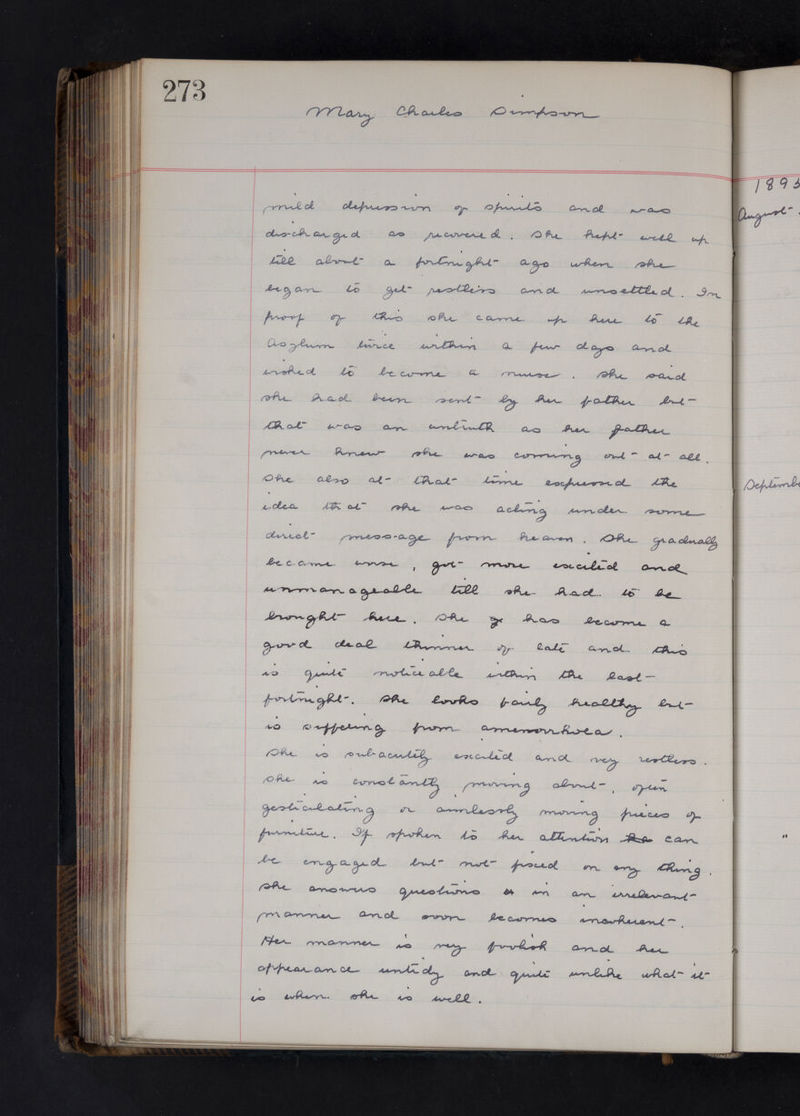 273
Mary Charles Simpson
mild depression of spirits and was
discharged as recovered. She kept well up
till about a fortnight ago when she
began to get restless and unsettled. In
proof of this she came up here to the
Asylum twice within a few days and
wished to become a nurse. She said
she had been sent by her father but
that was an untruth as her father
never knew she was coming out at all.
She also at that time expressed the
idea that she was acting under some
direct message from heaven. She gradually
became worse, got more excited and
unmanageable till she had to be
brought here. She has become a
good deal thinner of late and this
is quite noticeable within the last
fortnight. She looks fairly healthy but
is suffering from amenorrhoea.
She is subacutely excited and very restless.
She is constantly moving about, often
gesticulating or aimlessly moving pieces of
furniture. If spoken to her attention can
be engaged but not fixed on any thing.
She answers questions in an irrelevant
manner and soon becomes incoherent.
Her manner is very foolish and her
appearance untidy and quite unlike what it
is when she is well.
189
August
Septembe
"